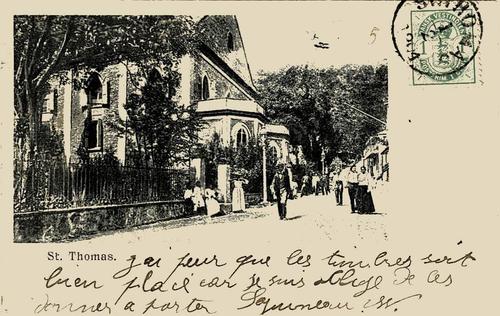 ST THOMAS
5
St. Thomas. j'ai peur que les timbres soit
bien placé car je suis obligé de les
donner a porter